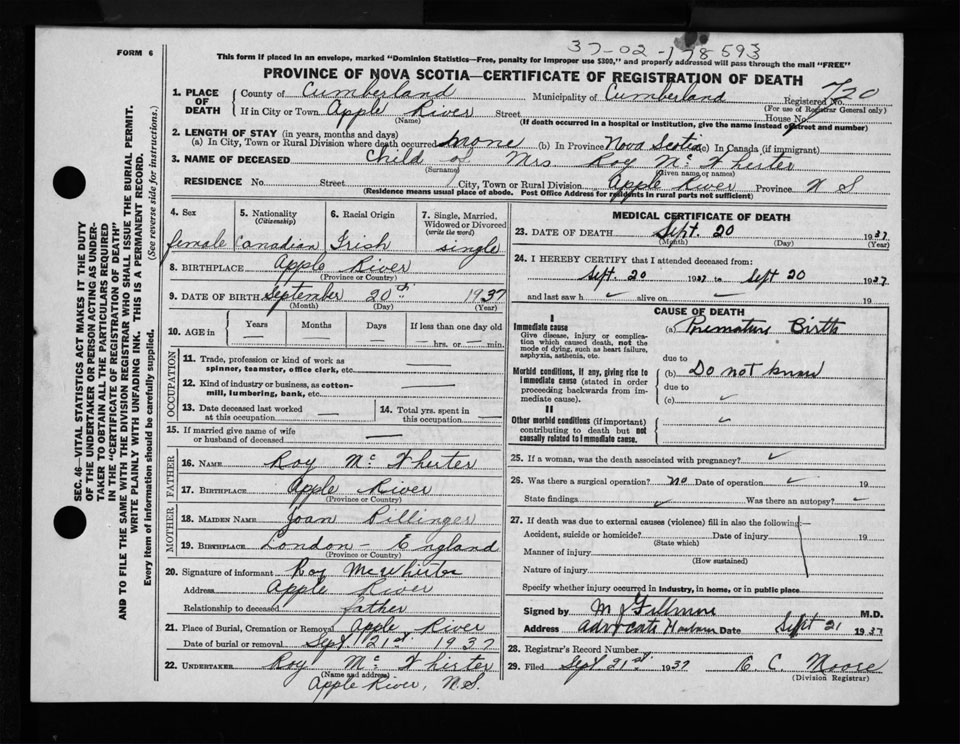 37-02-178593
FORM 6
This form if placed in an envelope, marked "Dominion Statistics—Free, penalty for improper use $300," and properly addressed will pass through the mail "FREE"
PROVINCE OF NOVA SCOTIA—CERTIFICATE OF REGISTRATION OF DEATH
1. PLACE OF DEATH County of Cumberland Municipality of Cumberland Registered No. 720
(For use of Registrar General only)
If in City or Town Apple River Street House No.
(Name) (If death occurred in a hospital or institution, give the name instead of street and number)
2. LENGTH OF STAY (in years, months and days)
(a) In City, Town or Rural Division where death occurred none (b) In Province Nova Scotia (c) In Canada (if immigrant)
3. NAME OF DECEASED Child of Mrs Roy Mc Wherter
(Surname) (Given name or names)
RESIDENCE No. Street City, Town or Rural Division Apple River Province N S
(Residence means usual place of abode. Post Office Address for residents in rural parts not sufficient)
4. Sex 5. Nationality 6. Racial Origin 7. Single, Married,
(Citizenship) Widowed or Divorced
(write the word)
female Canadian Irish single
8. BIRTHPLACE Apple River
(Province or Country)
9. DATE OF BIRTH September 20th 1937
(Month) (Day) (Year)
10. AGE in Years Months Days If less than one day old
— — — — hrs. or — min.
OCCUPATION
11. Trade, profession or kind of work as
spinner, teamster, office clerk, etc. —
12. Kind of industry or business, as cotton-
mill, lumbering, bank, etc. —
13. Date deceased last worked at this occupation — 14. Total yrs. spent in this occupation —
15. If married give name of wife
or husband of deceased —
FATHER
16. NAME Roy Mc Wherter
17. BIRTHPLACE Apple River
(Province or Country)
MOTHER
18. MAIDEN NAME Joan Pillinger
19. BIRTHPLACE London - England
(Province or Country)
20. Signature of informant Roy McWhirter
Address Apple River
Relationship to deceased father
21. Place of Burial, Cremation or Removal Apple River
Date of burial or removal Sept 21st 1937
22. UNDERTAKER Roy Mc Wherter
(Name and address)
Apple River, N.S.
MEDICAL CERTIFICATE OF DEATH
23. DATE OF DEATH Sept. 20 1937
(Month) (Day) (Year)
24. I HEREBY CERTIFY that I attended deceased from:
Sept. 20 1937 to Sept 20 1937
and last saw h ✓ alive on ✓ 19
CAUSE OF DEATH
I
Immediate cause (a) Premature Birth
Give disease, injury or complica-
tion which caused death, not the
mode of dying, such as heart failure,
asphyxia, asthenia, etc.
due to
Morbid conditions, if any, giving rise to (b) Do not know
immediate cause (stated in order
proceeding backwards from im-
mediate cause).
due to
(c) ✓
II
Other morbid conditions (if important) ✓
contributing to death but not
causally related to immediate cause.
25. If a woman, was the death associated with pregnancy? ✓
26. Was there a surgical operation? No Date of operation ✓ 19
State findings ✓ Was there an autopsy? ✓
27. If death was due to external causes (violence) fill in also the following:—
Accident, suicide or homicide? Date of injury 19
(State which)
Manner of injury
(How sustained)
Nature of injury
Specify whether injury occurred in industry, in home, or in public place
Signed by M Gillmore M.D.
Address Advocate Harbour Date Sept 21 1937
28. Registrar's Record Number
29. Filed Sept 21st 1937 C. Moore
(Division Registrar)
SEC. 46—VITAL STATISTICS ACT MAKES IT THE DUTY
OF THE UNDERTAKER OR PERSON ACTING AS UNDER-
TAKER TO OBTAIN ALL THE PARTICULARS REQUIRED
IN THE "CERTIFICATE OF REGISTRATION OF DEATH"
AND TO FILE THE SAME WITH THE DIVISION REGISTRAR WHO SHALL ISSUE THE BURIAL PERMIT.
WRITE PLAINLY WITH UNFADING INK. THIS IS A PERMANENT RECORD.
Every item of information should be carefully supplied. (See reverse side for instructions.)